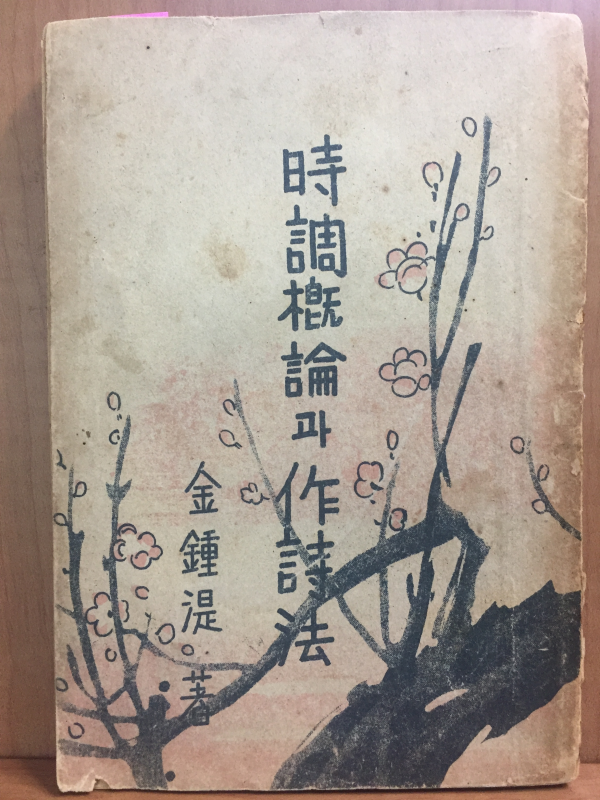 時調槪論과 作詩法
金鍾湜 著